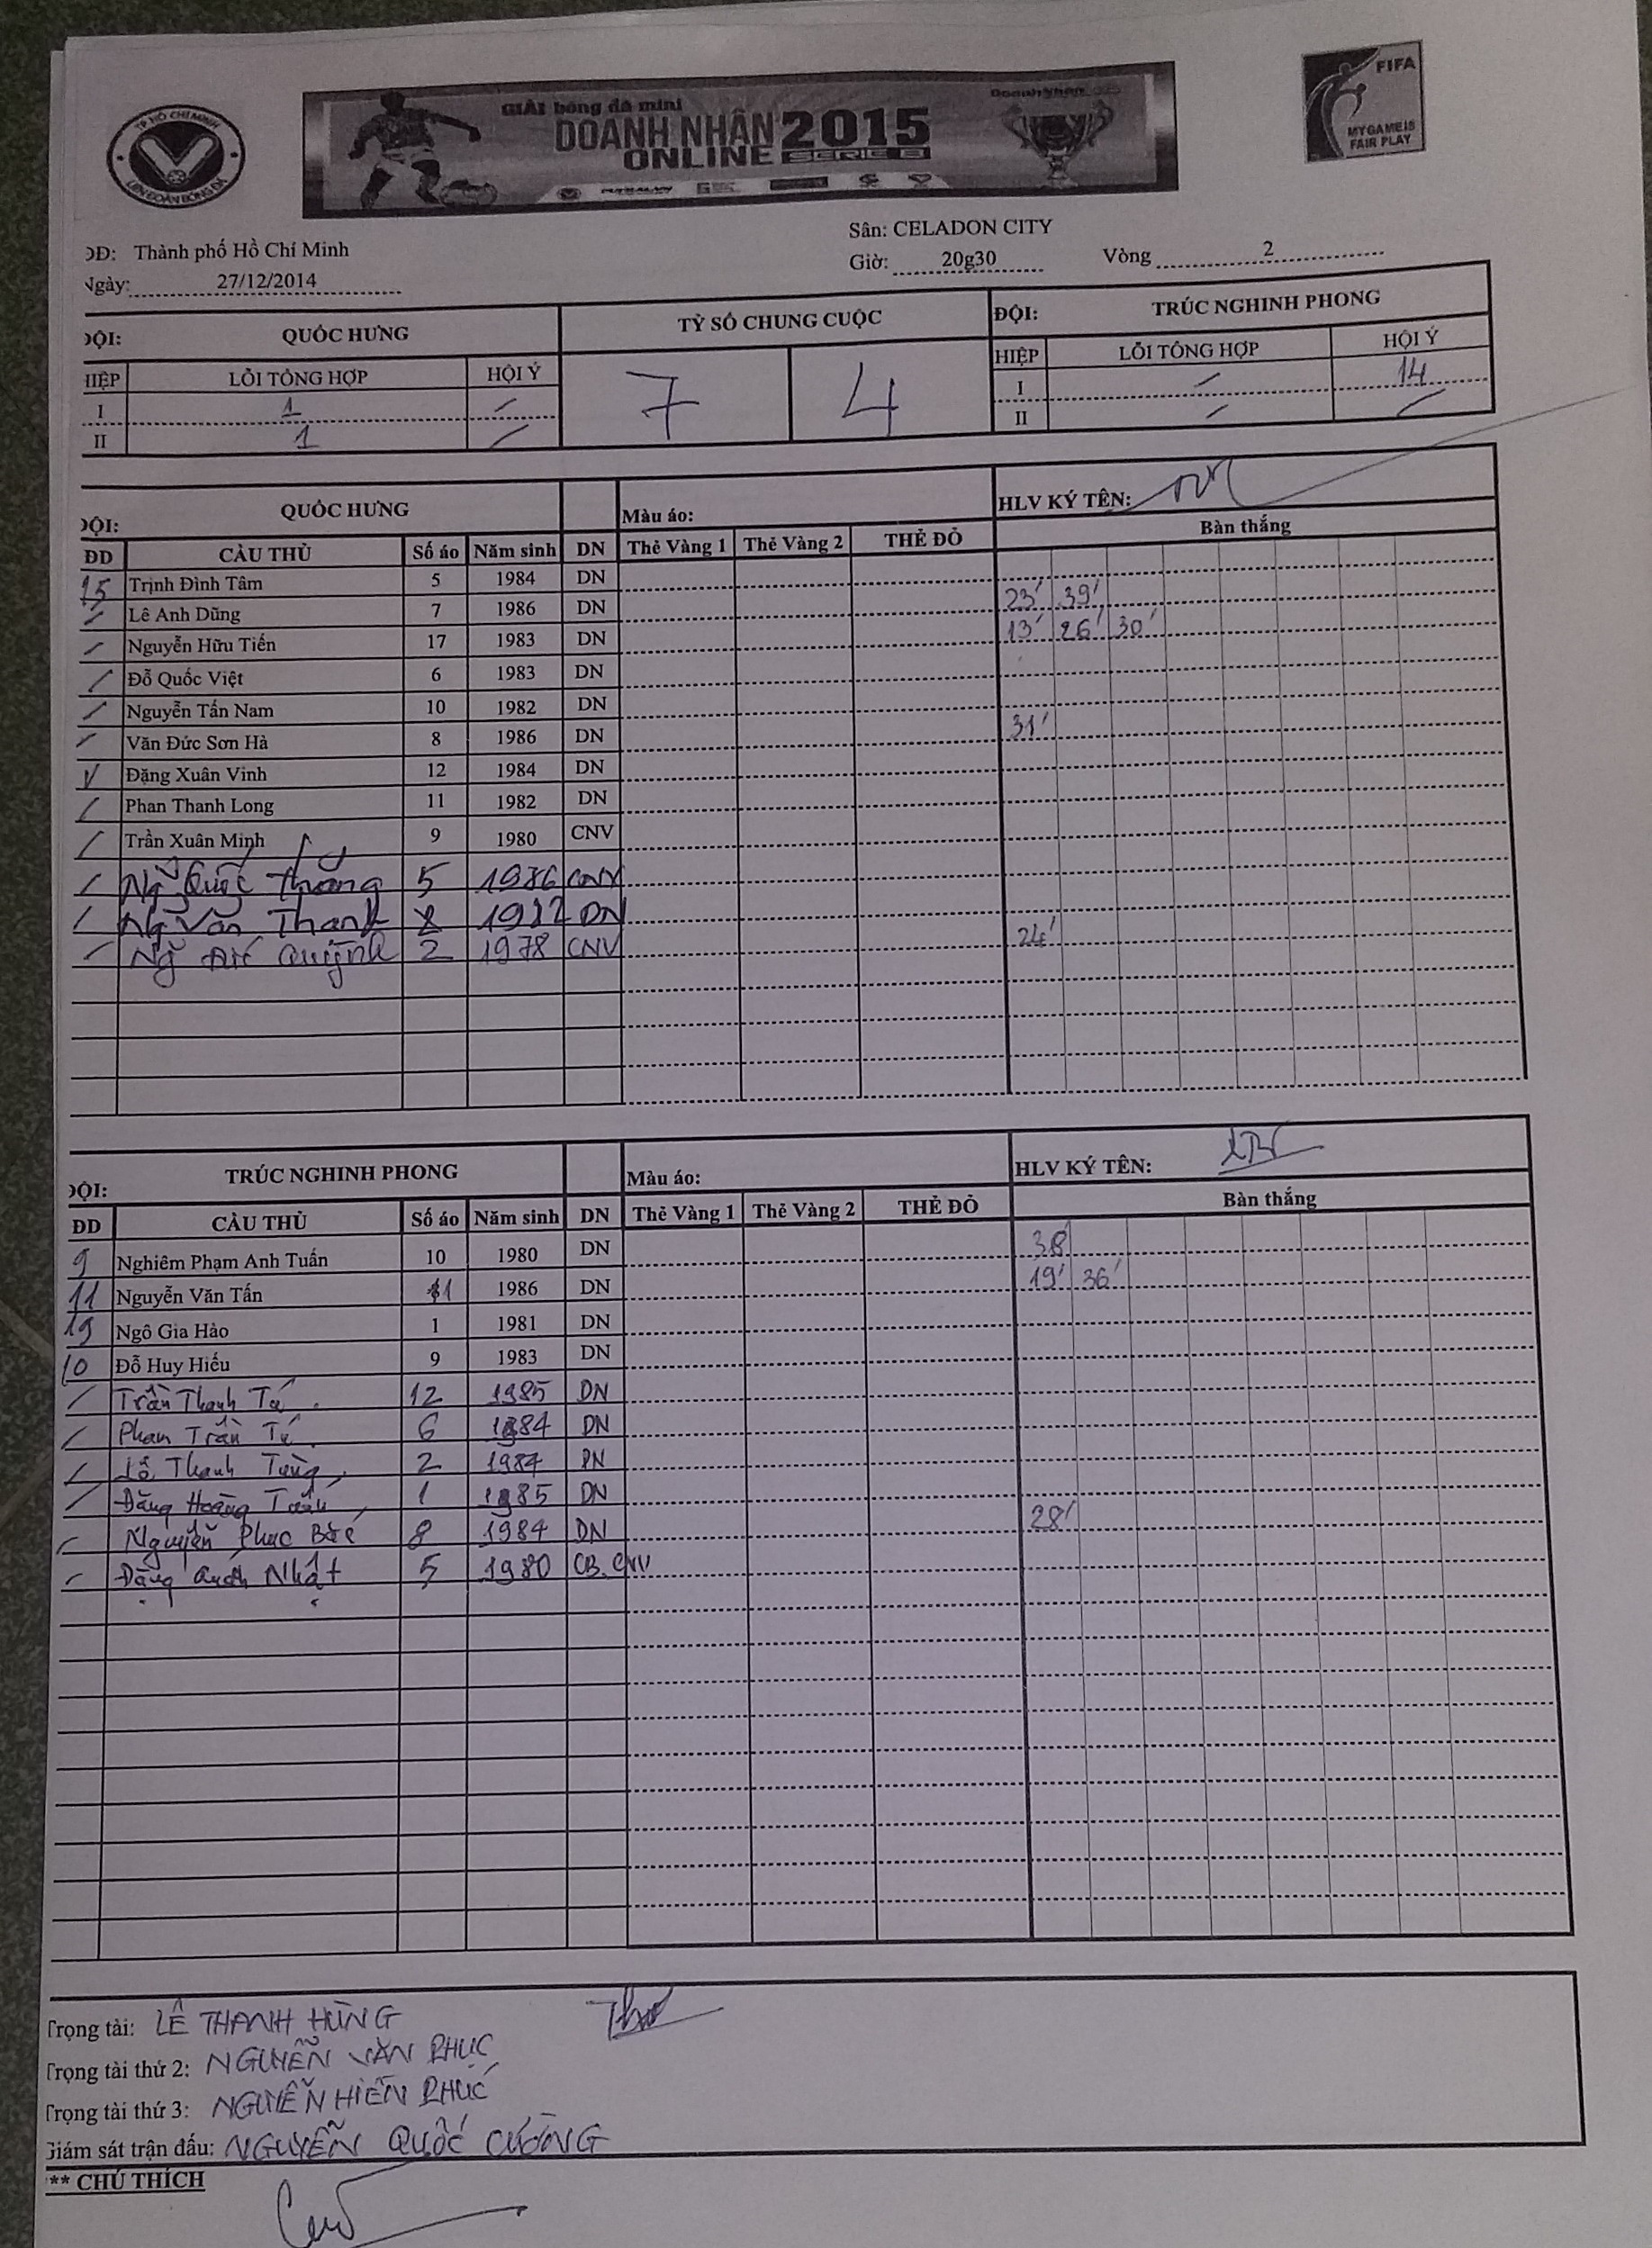 TP. HỒ CHÍ MINH
LIÊN ĐOÀN BÓNG ĐÁ
GIẢI bóng đá mini
DOANH NHÂN 2015
ONLINE SERIE B
FIFA
MY GAME IS
FAIR PLAY
DĐ: Thành phố Hồ Chí Minh
Sân: CELADON CITY
Ngày: 27/12/2014
Giờ: 20g30 Vòng 2
ĐỘI: QUỐC HƯNG TỶ SỐ CHUNG CUỘC ĐỘI: TRÚC NGHINH PHONG
HIỆP LỖI TỔNG HỢP HỘI Ý 7 4 HIỆP LỖI TỔNG HỢP HỘI Ý
I 1 / I / 14
II 1 / II / /
ĐỘI: QUỐC HƯNG Màu áo: HLV KÝ TÊN:
ĐD CẦU THỦ Số áo Năm sinh DN Thẻ Vàng 1 Thẻ Vàng 2 THẺ ĐỎ Bàn thắng
15 Trịnh Đình Tâm 5 1984 DN
/ Lê Anh Dũng 7 1986 DN 23' 39'
/ Nguyễn Hữu Tiến 17 1983 DN 13' 26' 30'
/ Đỗ Quốc Việt 6 1983 DN
/ Nguyễn Tấn Nam 10 1982 DN
/ Văn Đức Sơn Hà 8 1986 DN 31'
V Đặng Xuân Vinh 12 1984 DN
/ Phan Thanh Long 11 1982 DN
/ Trần Xuân Minh 9 1980 CNV
/ Ng̃ Quốc Thắng 5 1986 CNV
/ Ng̃ Văn Thanh 1982 DN
/ Ng̃ Đức Quỳnh 2 1978 CNV 24'
ĐỘI: TRÚC NGHINH PHONG Màu áo: HLV KÝ TÊN:
ĐD CẦU THỦ Số áo Năm sinh DN Thẻ Vàng 1 Thẻ Vàng 2 THẺ ĐỎ Bàn thắng
9 Nghiêm Phạm Anh Tuấn 10 1980 DN 38'
11 Nguyễn Văn Tấn 11 1986 DN 19' 36'
19 Ngô Gia Hảo 1 1981 DN
10 Đỗ Huy Hiếu 9 1983 DN
/ Trần Thanh Tú 12 1985 DN
/ Phan Trần Tú 6 1984 DN
/ Lê Thanh Tùng 2 1984 DN
/ Đặng Hoàng 1 1985 DN
/ Nguyễn Phúc 8 1984 DN 28'
/ Đặng Nhật 5 1980 CB. CNV
Trọng tài: LÊ THANH HÙNG
Trọng tài thứ 2: NGUYỄN VĂN PHỤC
Trọng tài thứ 3: NGUYỄN HIỀN PHÚC
Giám sát trận đấu: NGUYỄN QUỐC CƯỜNG
** CHÚ THÍCH